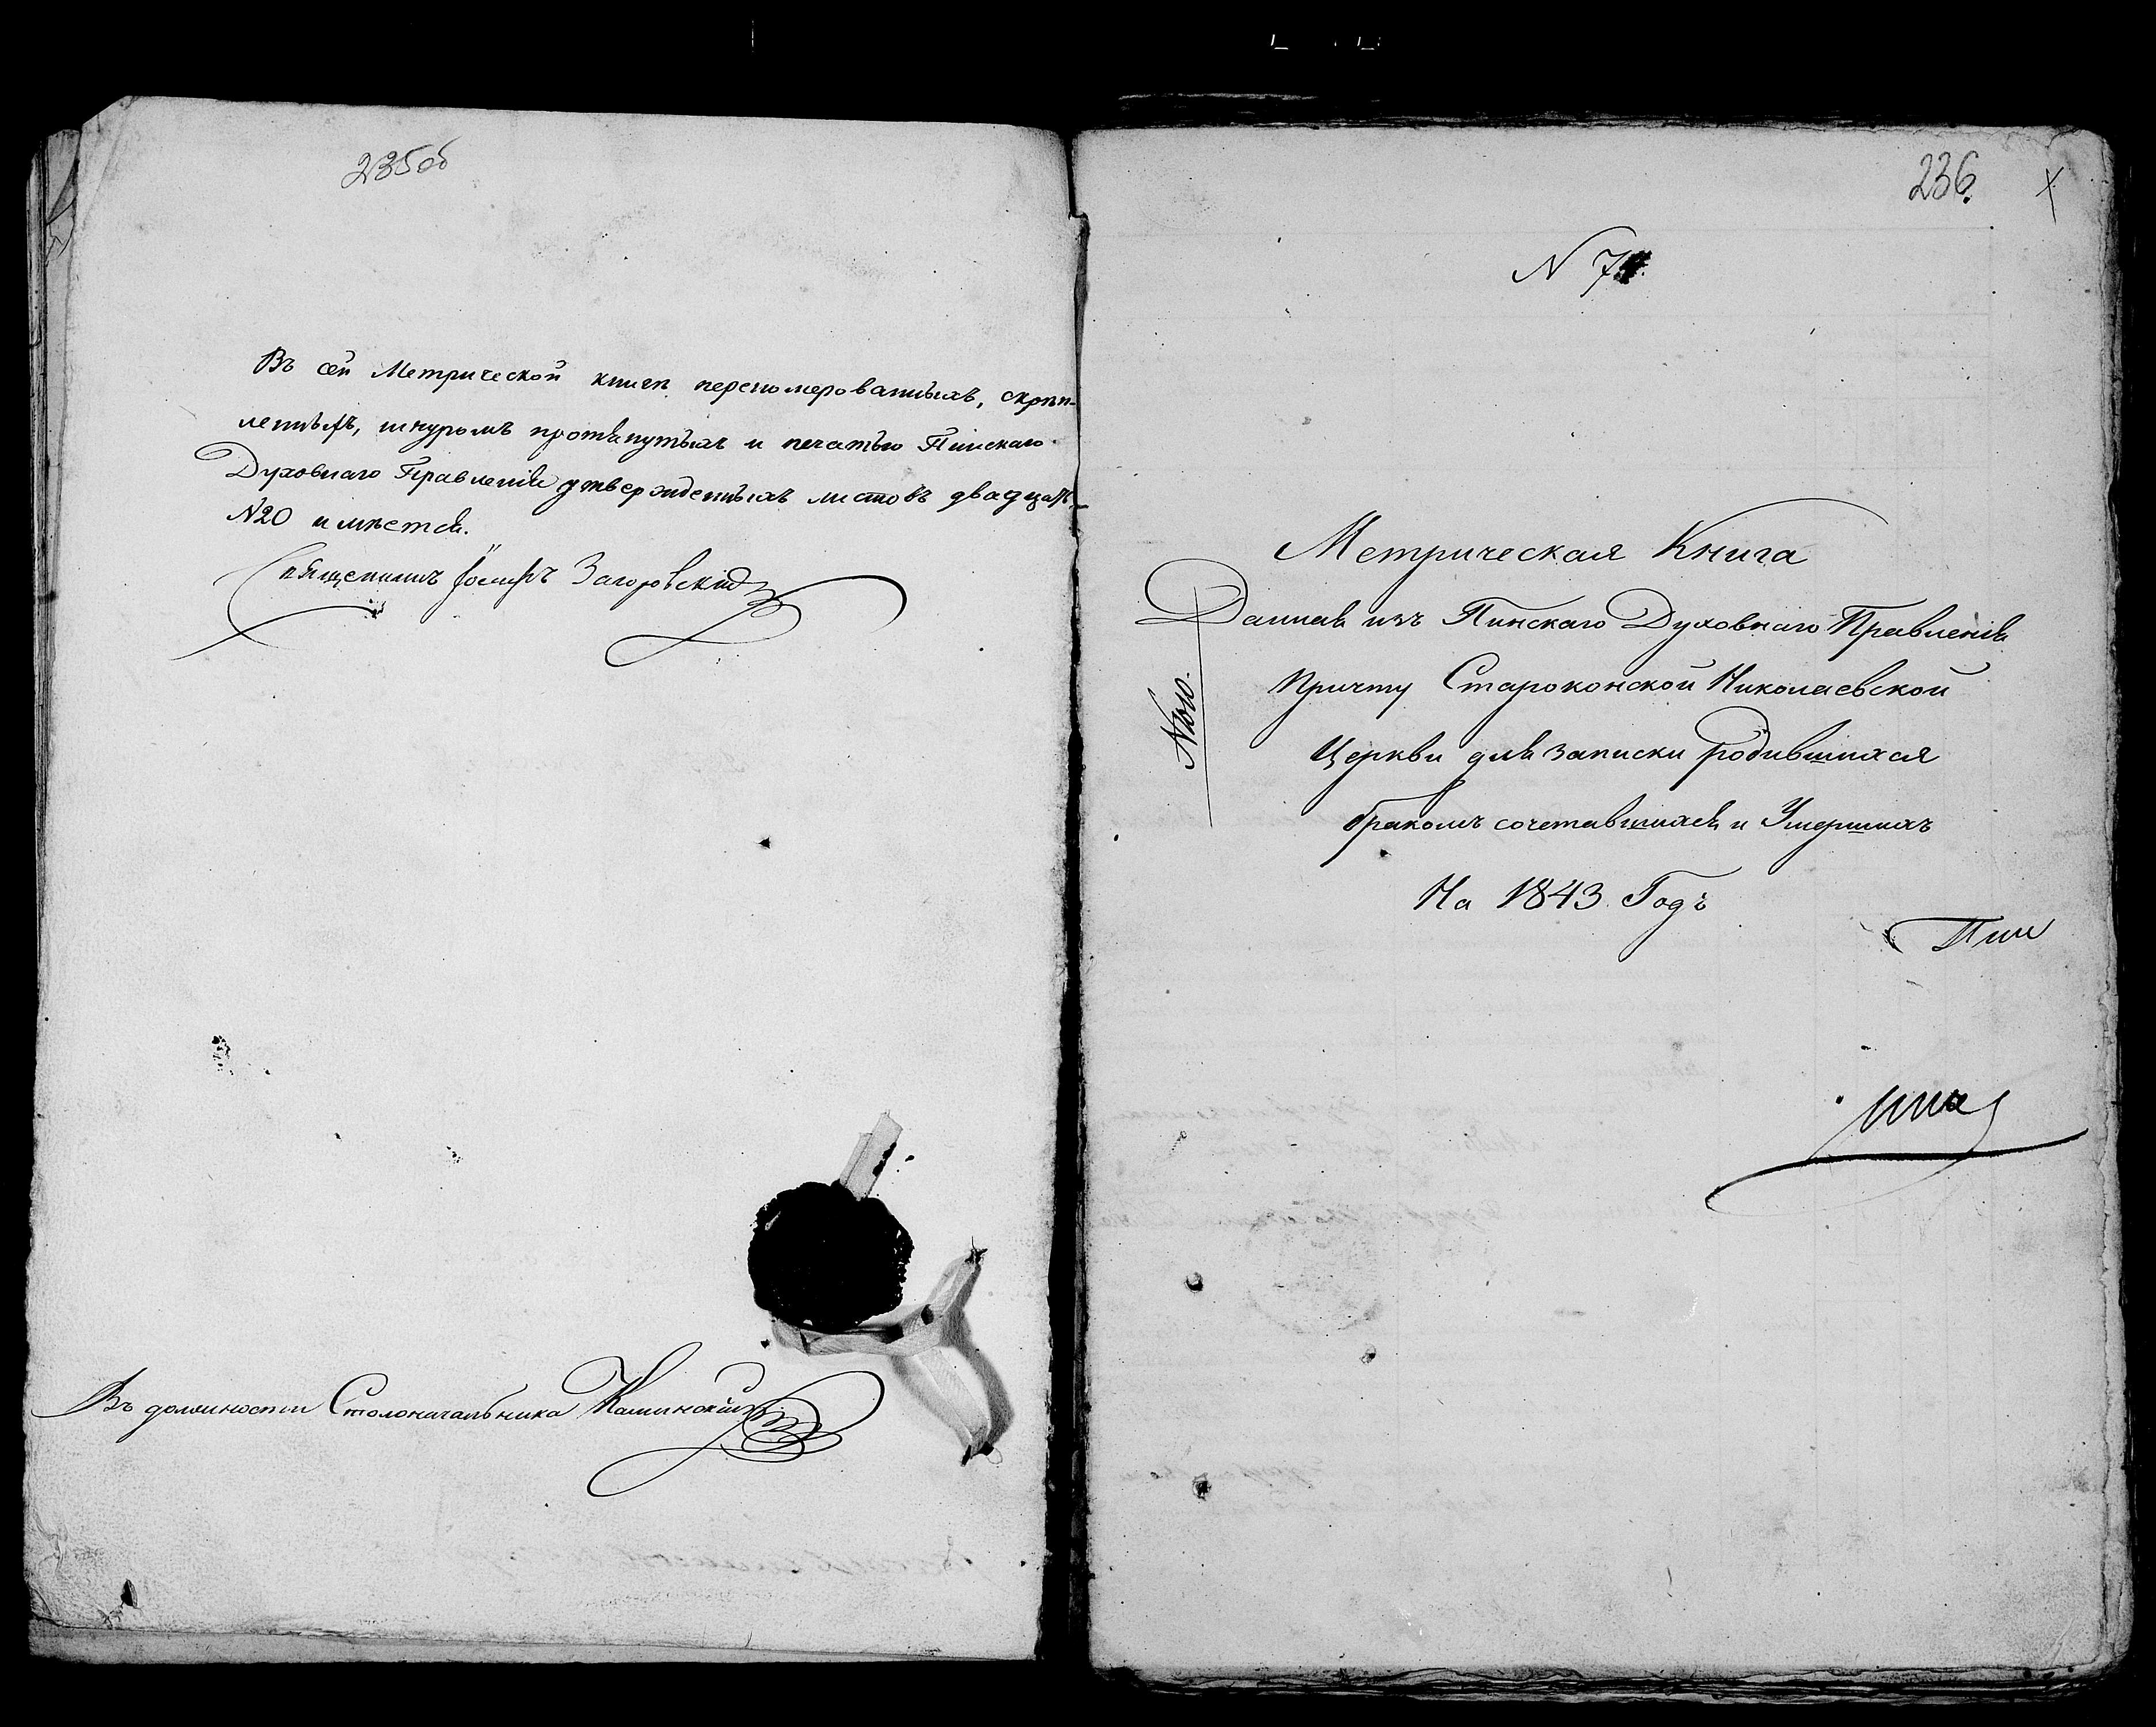 235об
Въ сей Метрической книгѣ переномерованныхъ, скрѣп-
ленныхъ, шнуромъ протянутыхъ и печатью Пинскаго
Духовнаго Правленія утвержденныхъ листовъ двадцать
№20 имѣется.
Священникъ Іосифъ Загоровскій
Въ должности Столоначальника Каминскій
236.
N 7
Метрическая Книга
Данная изъ Пинскаго Духовнаго Правленія
Причту Староконской Николаевской
Церкви для записки родившихся
бракомъ сочетавшихся и Умершихъ
На 1843 Годъ
Пин